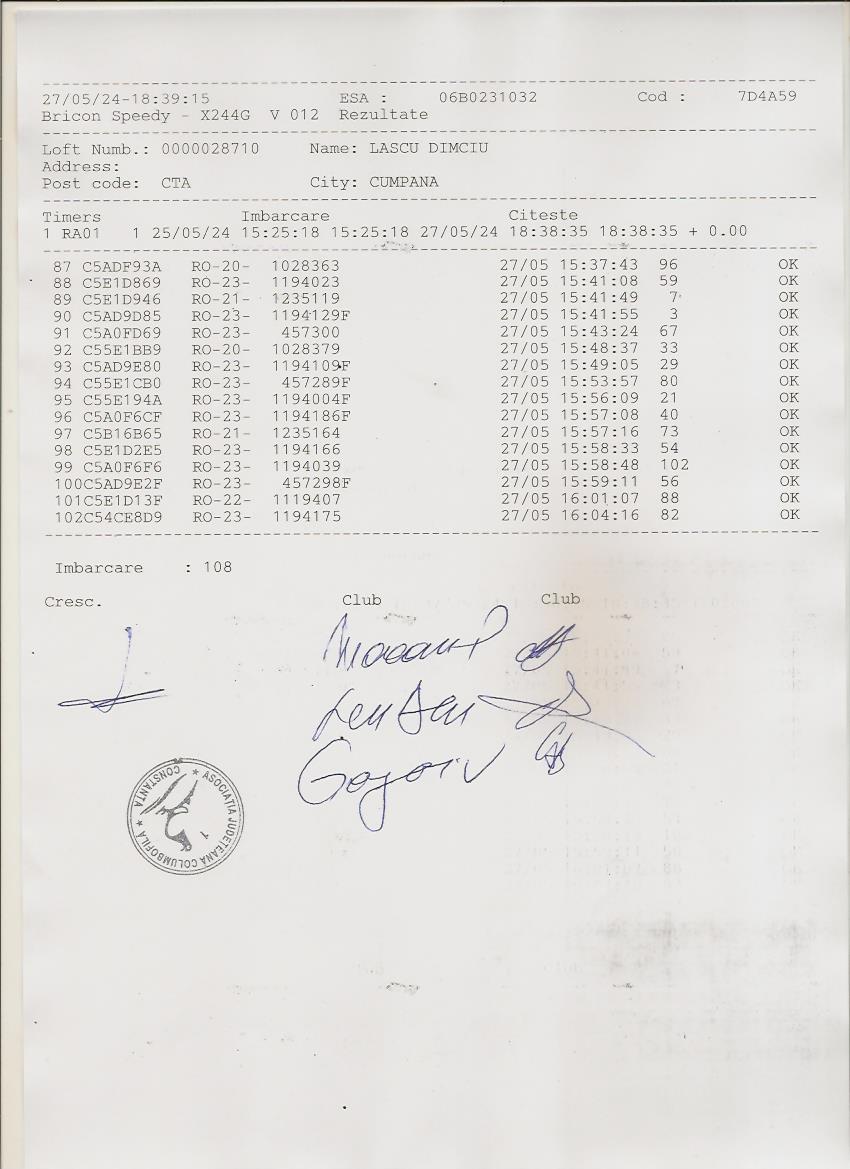 27/05/24-18:39:15 ESA : 06B0231032 Cod : 7D4A59
Bricon Speedy - X244G V 012 Rezultate
Loft Numb.: 0000028710 Name: LASCU DIMCIU
Address:
Post code: CTA City: CUMPANA
Timers Imbarcare Citeste
1 RA01 1 25/05/24 15:25:18 15:25:18 27/05/24 18:38:35 18:38:35 + 0.00
87 C5ADF93A RO-20- 1028363 27/05 15:37:43 96 OK
88 C5E1D869 RO-23- 1194023 27/05 15:41:08 59 OK
89 C5E1D946 RO-21- 1235119 27/05 15:41:49 7 OK
90 C5AD9D85 RO-23- 1194129F 27/05 15:41:55 3 OK
91 C5A0FD69 RO-23- 457300 27/05 15:43:24 67 OK
92 C55E1BB9 RO-20- 1028379 27/05 15:48:37 33 OK
93 C5AD9E80 RO-23- 1194109F 27/05 15:49:05 29 OK
94 C55E1CB0 RO-23- 457289F 27/05 15:53:57 80 OK
95 C55E194A RO-23- 1194004F 27/05 15:56:09 21 OK
96 C5A0F6CF RO-23- 1194186F 27/05 15:57:08 40 OK
97 C5B16B65 RO-21- 1235164 27/05 15:57:16 73 OK
98 C5E1D2E5 RO-23- 1194166 27/05 15:58:33 54 OK
99 C5A0F6F6 RO-23- 1194039 27/05 15:58:48 102 OK
100C5AD9E2F RO-23- 457298F 27/05 15:59:11 56 OK
101C5E1D13F RO-22- 1119407 27/05 16:01:07 88 OK
102C54CE8D9 RO-23- 1194175 27/05 16:04:16 82 OK
Imbarcare : 108
Cresc. Club Club
ASOCIATIA JUDETEANA COLUMBOFILA * CONSTANTA *
1